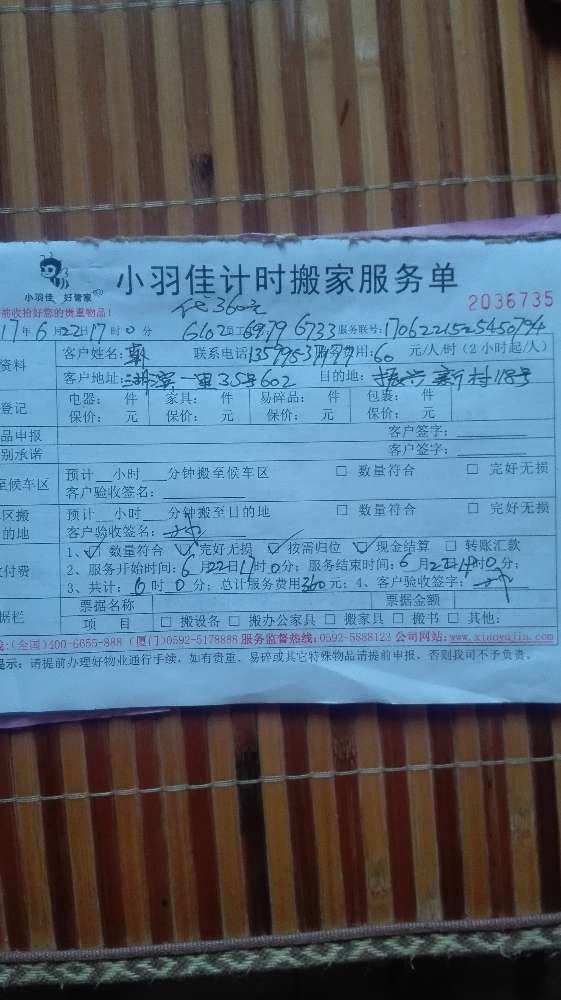 小羽佳 好管家
小羽佳计时搬家服务单
前收拾好您的贵重物品!
代360元
2036735
17年6月22日17时0分 6102 员工 6979 6733 服务联号:1706221525450794
资料
客户姓名: 联系电话 用:60元/人/时(2小时起/人)
客户地址:湖滨一里35号602 目的地:振兴新村118号
登记
电器: 件 家具: 件 易碎品: 件 包装: 件
保价: 元 保价: 元 保价: 元 保价: 元
品申报 客户签字:
别承诺 客户签字:
至候车区
预计 小时 分钟搬至候车区 □ 数量符合 □ 完好无损
客户验收签名:
区搬
的地
预计 小时 分钟搬至目的地 □ 数量符合 □ 完好无损
客户验收签名:
付费
1、☑ 数量符合 ☑ 完好无损 ☑ 按需归位 ☑ 现金结算 □ 转账汇款
2、服务开始时间:6月22日17时0分;服务结束时间:6月22日 时0分;
3、共计:6时0分;总计服务费用360元;4、客户验收签字:
据栏
票据名称 票据金额
项 目 □ 搬设备 □ 搬办公家具 □ 搬家具 □ 搬书 □ 其他:
线:(全国)400-6655-888 (厦门)0592-5178888 服务监督热线:0592-5888123 公司网站:www.xiaoyujia.com
提示:请提前办理好物业通行手续,如有贵重、易碎或其它特殊物品请提前申报,否则我司不予负责。